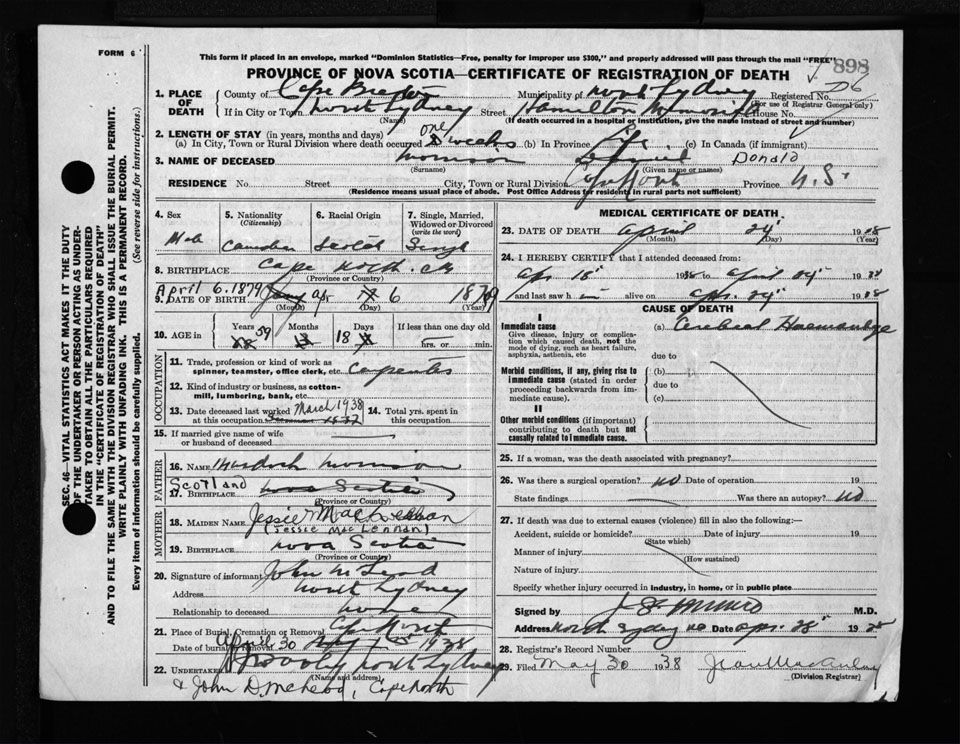 FORM 6
This form if placed in an envelope, marked "Dominion Statistics—Free, penalty for improper use $300," and properly addressed will pass through the mail "FREE"
898
PROVINCE OF NOVA SCOTIA—CERTIFICATE OF REGISTRATION OF DEATH
1. PLACE OF DEATH
County of Cape Breton Municipality of North Sydney Registered No.
(For use of Registrar General only)
If in City or Town North Sydney Street Hamilton Memorial House No.
(Name) (If death occurred in a hospital or institution, give the name instead of street and number)
2. LENGTH OF STAY (in years, months and days)
(a) In City, Town or Rural Division where death occurred one week (b) In Province Life (c) In Canada (if immigrant)
3. NAME OF DECEASED Morrison Daniel Donald
(Surname) (Given name or names)
RESIDENCE No. Street City, Town or Rural Division Cape North Province N.S.
(Residence means usual place of abode. Post Office Address for residents in rural parts not sufficient)
SEC. 46—VITAL STATISTICS ACT MAKES IT THE DUTY
OF THE UNDERTAKER OR PERSON ACTING AS UNDER-
TAKER TO OBTAIN ALL THE PARTICULARS REQUIRED
IN THE "CERTIFICATE OF REGISTRATION OF DEATH"
AND TO FILE THE SAME WITH THE DIVISION REGISTRAR WHO SHALL ISSUE THE BURIAL PERMIT.
WRITE PLAINLY WITH UNFADING INK. THIS IS A PERMANENT RECORD.
Every item of information should be carefully supplied. (See reverse side for instructions.)
4. Sex 5. Nationality (Citizenship) 6. Racial Origin 7. Single, Married, Widowed or Divorced (write the word)
Male Canadian Scotch Single
8. BIRTHPLACE Cape North C.B.
(Province or Country)
April 6. 1879
9. DATE OF BIRTH Apr 6 1879
(Month) (Day) (Year)
10. AGE in Years 59 Months Days 18 If less than one day old
hrs. or min.
OCCUPATION
11. Trade, profession or kind of work as spinner, teamster, office clerk, etc. Carpenter
12. Kind of industry or business, as cotton-mill, lumbering, bank, etc.
13. Date deceased last worked at this occupation March 1938 14. Total yrs. spent in this occupation
15. If married give name of wife or husband of deceased
FATHER
16. NAME Murdoch Morrison
Scotland
17. BIRTHPLACE Nova Scotia
(Province or Country)
MOTHER
18. MAIDEN NAME Jessie MacLennan
(Jessie MacLennan)
19. BIRTHPLACE Nova Scotia
(Province or Country)
20. Signature of informant John McLeod
Address North Sydney
Relationship to deceased none
21. Place of Burial, Cremation or Removal Cape North
Date of burial or removal April 30 1938
22. Undertaker North Sydney
(Name and address)
& John D. McLeod, Cape North
MEDICAL CERTIFICATE OF DEATH
23. DATE OF DEATH April 24 1938
(Month) (Day) (Year)
24. I HEREBY CERTIFY that I attended deceased from:
Apr 18 1938 to April 24 1938
and last saw him alive on Apr. 24 1938
CAUSE OF DEATH
I
Immediate cause (a) Cerebral Haemorrhage
Give disease, injury or complication which caused death, not the mode of dying, such as heart failure, asphyxia, asthenia, etc
due to
Morbid conditions, if any, giving rise to immediate cause (stated in order proceeding backwards from immediate cause). (b)
due to
(c)
II
Other morbid conditions (if important) contributing to death but not causally related to immediate cause.
25. If a woman, was the death associated with pregnancy?
26. Was there a surgical operation? No Date of operation 19
State findings Was there an autopsy? No
27. If death was due to external causes (violence) fill in also the following:—
Accident, suicide or homicide? Date of injury 19
(State which)
Manner of injury
(How sustained)
Nature of injury
Specify whether injury occurred in industry, in home, or in public place
Signed by M.D.
Address North Sydney NS Date Apr. 28 1938
28. Registrar's Record Number
29. Filed May 30 1938
(Division Registrar)